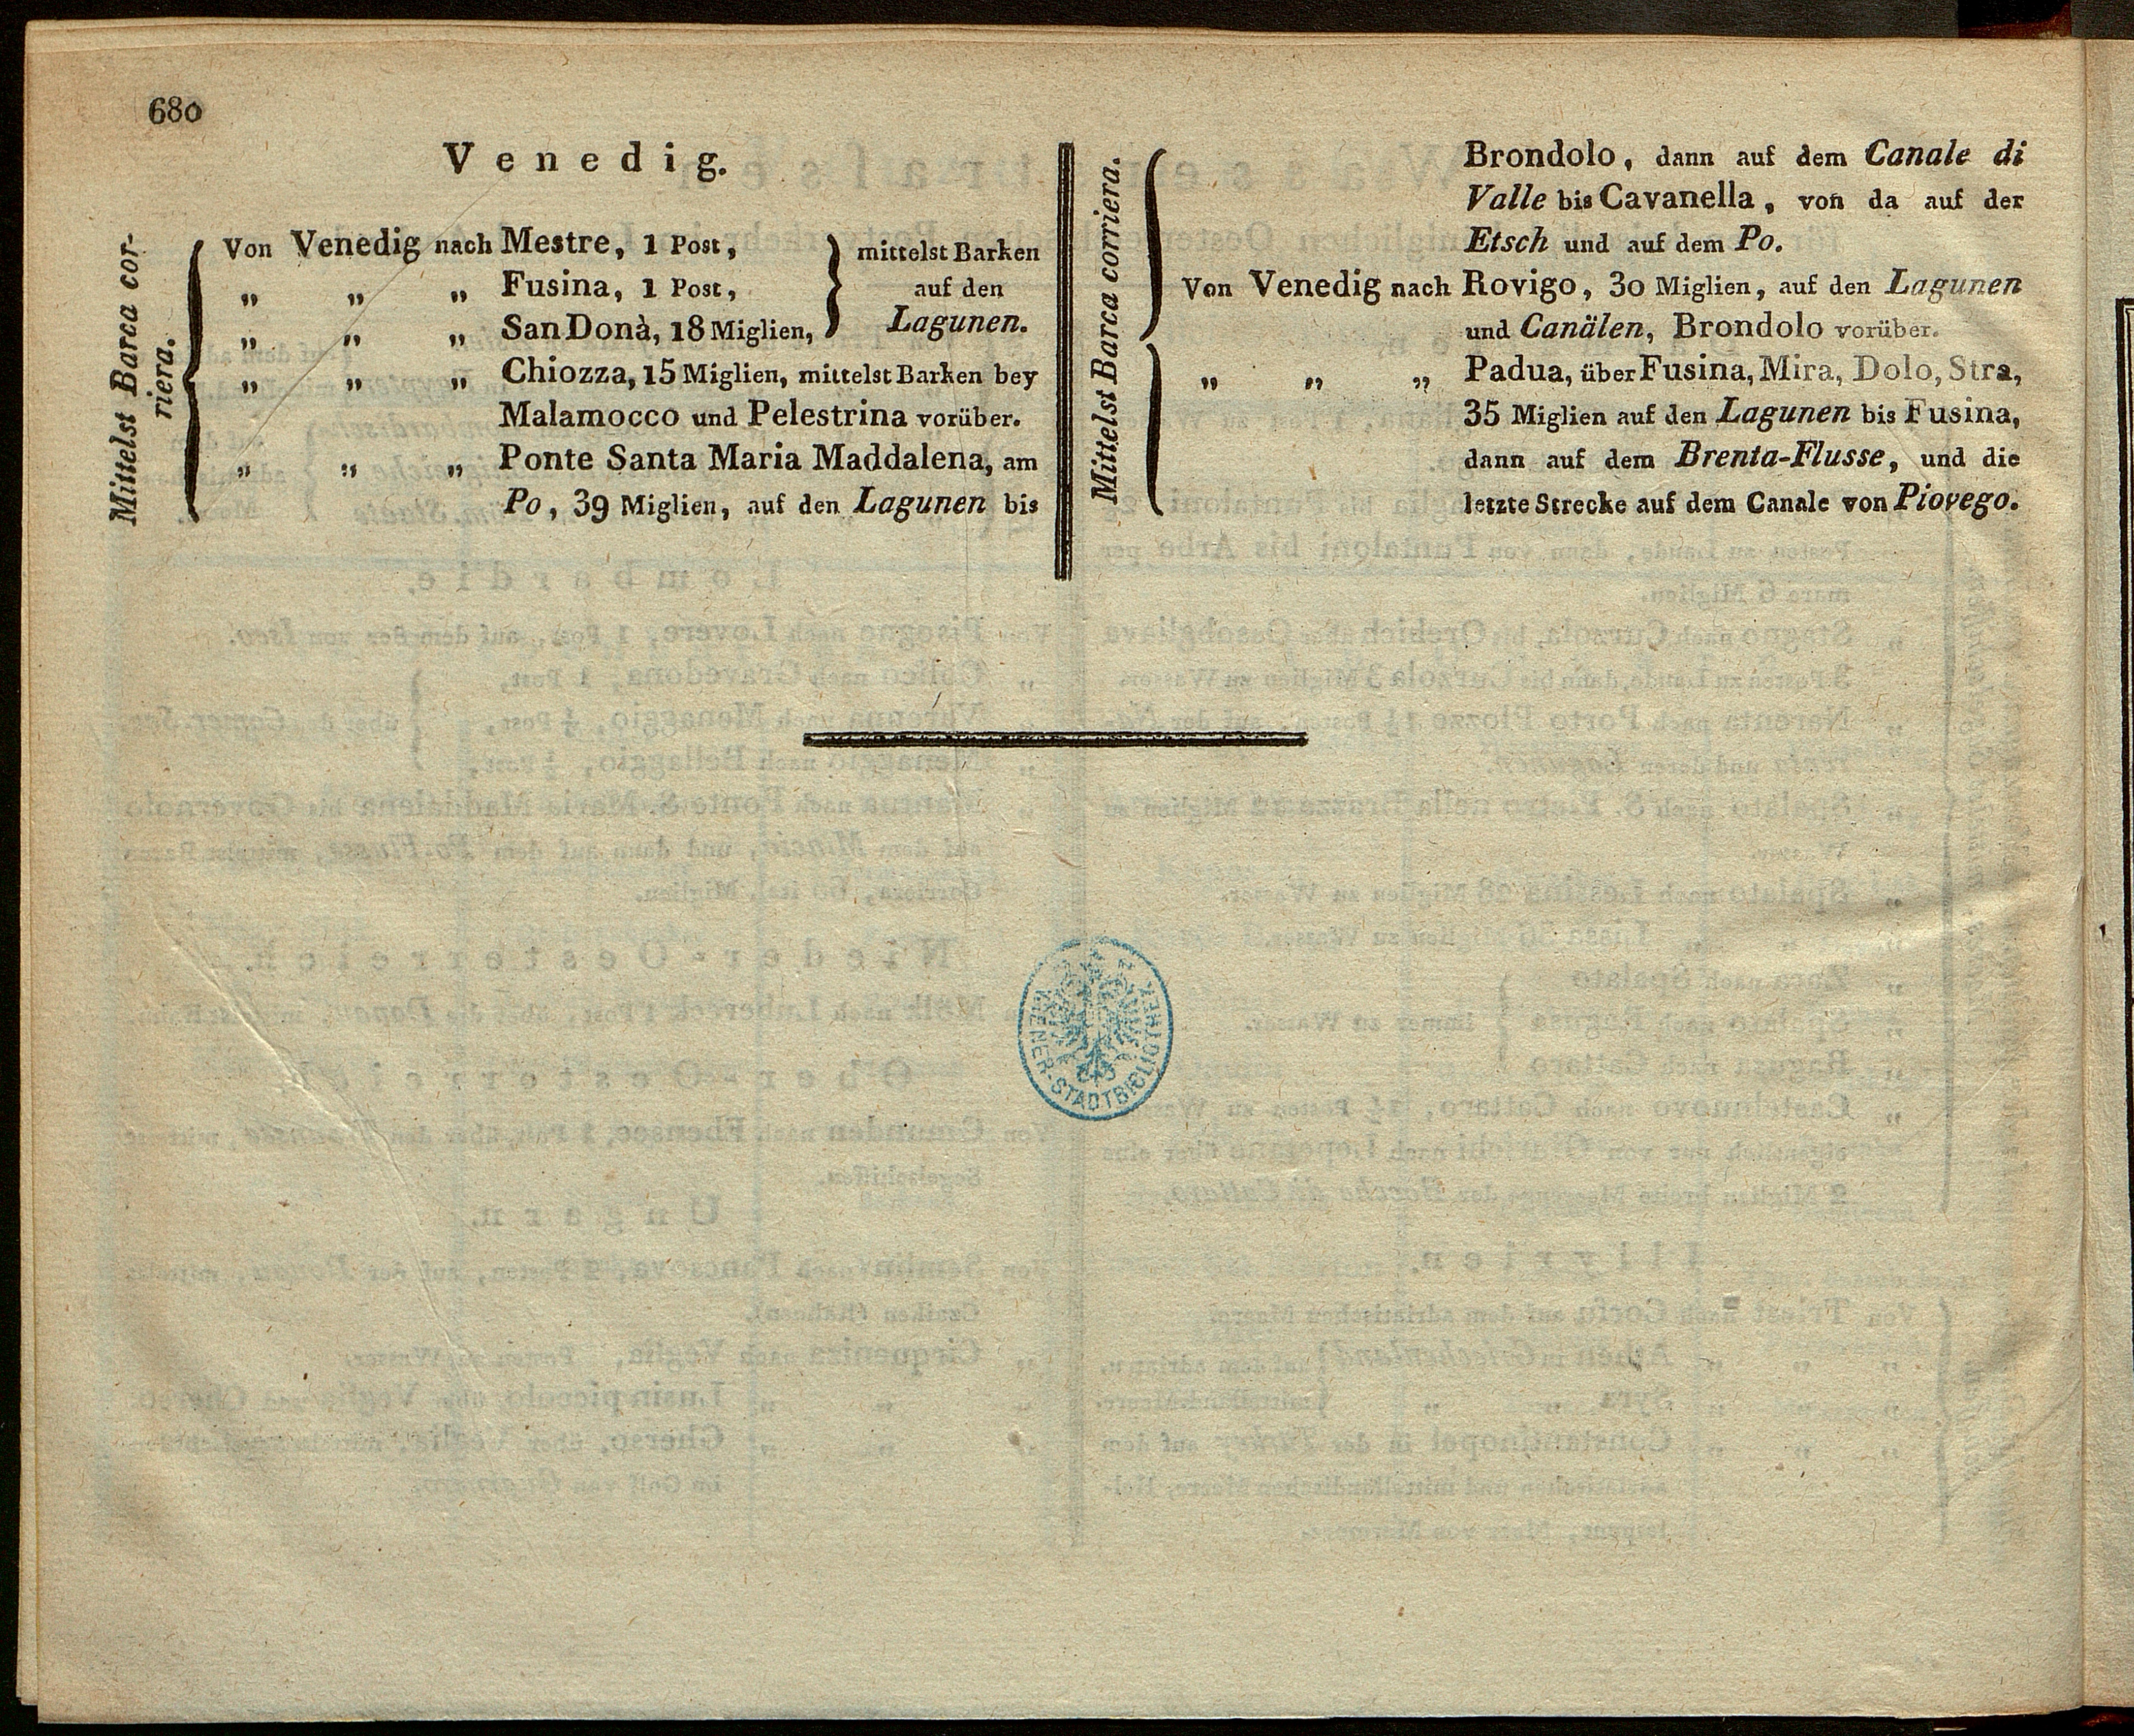 680
Venedig.
Mittelst Barca cor-
riera.
Von Venedig nach Mestre, 1 Post,
„ „ „ Fusina, 1 Post,
„ „ „ San Donà, 18 Miglien,
mittelst Barken
auf den
Lagunen.
„ „ „ Chiozza, 15 Miglien, mittelst Barken bey
Malamocco und Pelestrina vorüber.
„ „ „ Ponte Santa Maria Maddalena, am
Po, 39 Miglien, auf den Lagunen bis
Mittelst Barca corriera.
Brondolo, dann auf dem Canale di
Valle bis Cavanella, von da auf der
Etsch und auf dem Po.
Von Venedig nach Rovigo, 30 Miglien, auf den Lagunen
und Canälen, Brondolo vorüber.
„ „ „ Padua, über Fusina, Mira, Dolo, Stra,
35 Miglien auf den Lagunen bis Fusina,
dann auf dem Brenta-Flusse, und die
letzte Strecke auf dem Canale von Piovego.
WIENER-STADTBIBLIOTHEK